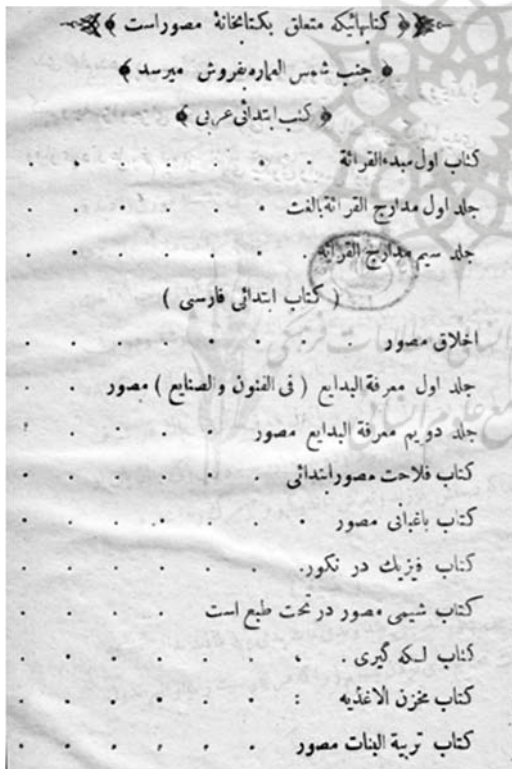 ﴿ کتابهائیکه متعلق بکتابخانهٔ مصور است ﴾
﴿ جنب شمس العماره بفروش میرسد ﴾
﴿ کتب ابتدائی عربی ﴾
کتاب اول مبدءالقرائة . . . . . . . .
جلد اول مدارج القرائة بالفت . . . . . .
جلد سیم مدارج القرائه . . . . . . . .
( کتاب ابتدائی فارسی )
اخلاق مصور . . . . . . . .
جلد اول معرفة البدایع ( فی الفنون والصنایع ) مصور . .
جلد دویم معرفة البدایع مصور . . . . .
کتاب فلاحت مصور ابتدائی . . . . . .
کتاب باغبانی مصور . . . . . . .
کتاب فیزیك در نکور. . . . . . .
کتاب شیمی مصور در تحت طبع است . . . .
کتاب لکه گیری . . . . . . . .
کتاب مخزن الاغذیه : . . . . . .
کتاب تربیة البنات مصور . . . . . .
انسانی و مطالعات فرهنگی
جامع علوم انسانی